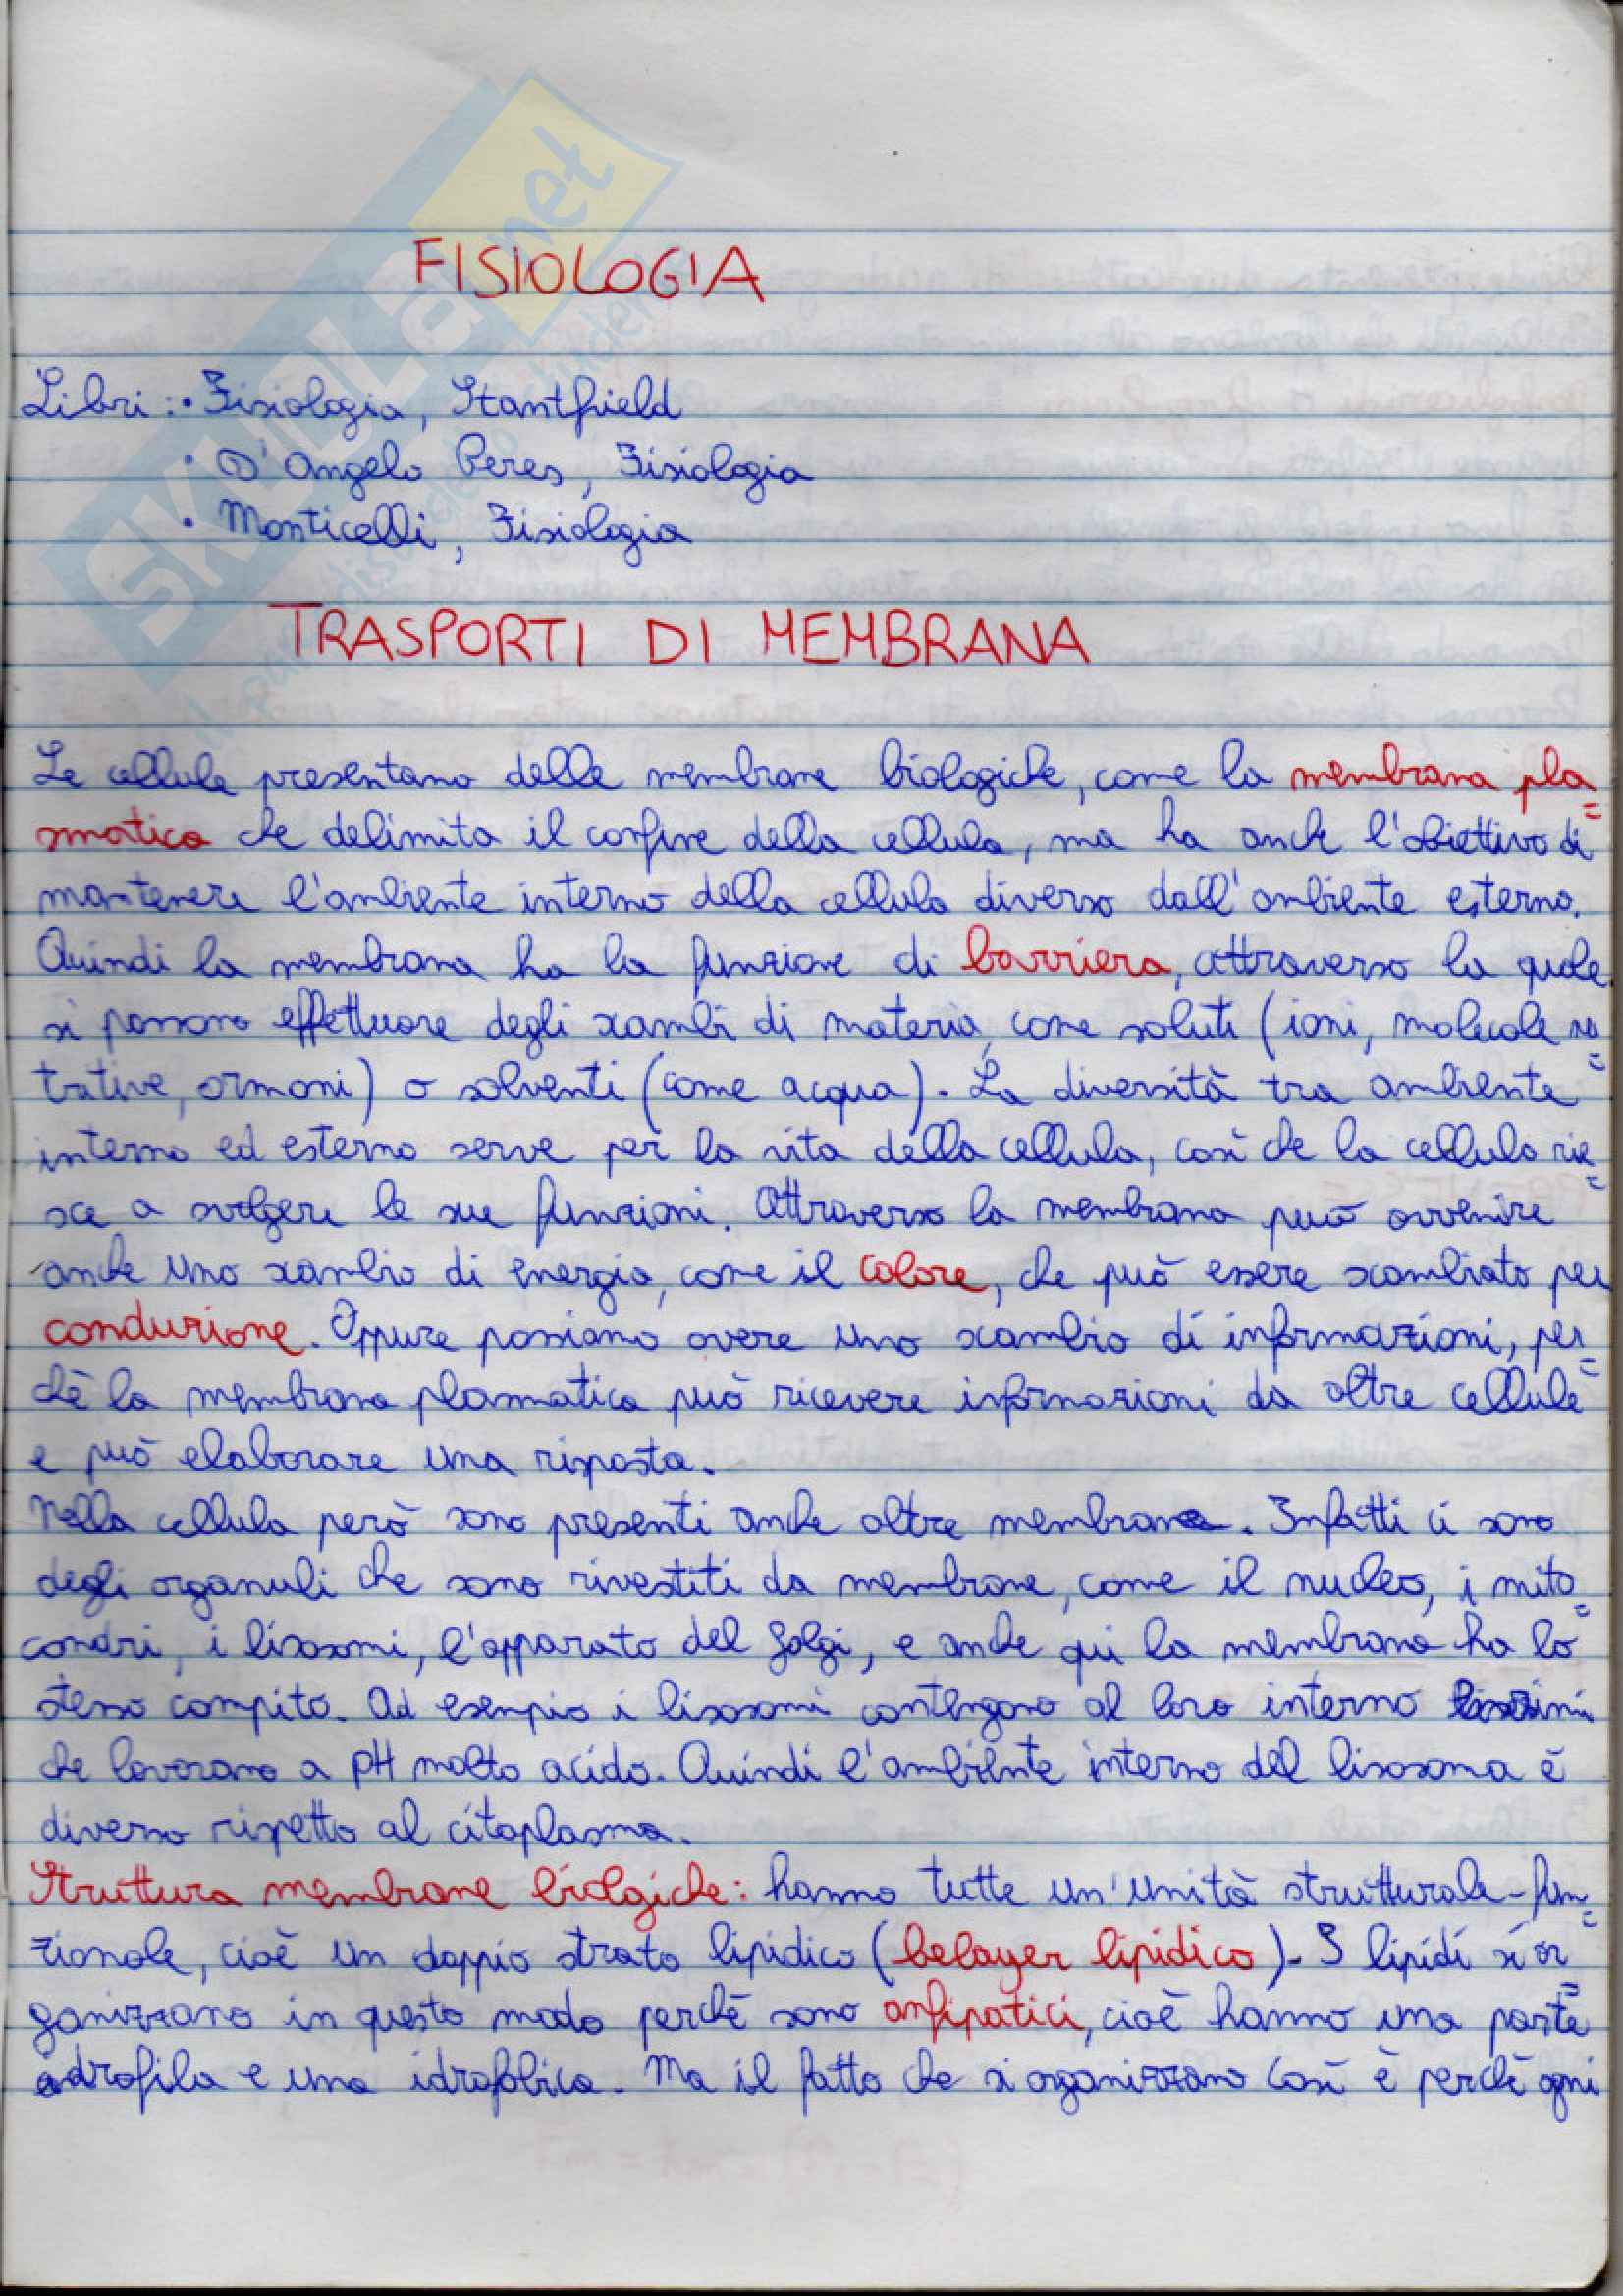 FISIOLOGIA
Libri: • Fisiologia, Stantfield
• D'Angelo Peres, Fisiologia
• Monticelli, Fisiologia
SKUOLA.net
TRASPORTI DI MEMBRANA
Le cellule presentano delle membrane biologiche, come la membrana pla=
smatica che delimita il confine della cellula, ma ha anche l'obiettivo di
mantenere l'ambiente interno della cellula diverso dall'ambiente esterno.
Quindi la membrana ha la funzione di barriera, attraverso la quale
si possono effettuare degli scambi di materia, come soluti (ioni, molecole nu=
tritive, ormoni) o solventi (come acqua). La diversità tra ambiente
interno ed esterno serve per la vita della cellula, così che la cellula rie=
sce a svolgere le sue funzioni. Attraverso la membrana può avvenire
anche uno scambio di energia, come il calore, che può essere scambiato per
conduzione. Oppure possiamo avere uno scambio di informazioni, per=
chè la membrana plasmatica può ricevere informazioni da altre cellule
e può elaborare una risposta.
Nella cellula però sono presenti anche altre membrane. Infatti ci sono
degli organuli che sono rivestiti da membrane, come il nucleo, i mito=
condri, i lisosomi, l'apparato del Golgi, e anche qui la membrana ha lo
stesso compito. Ad esempio i lisosomi contengono al loro interno
che lavorano a pH molto acido. Quindi l'ambiente interno del lisosoma è
diverso rispetto al citoplasma.
Struttura membrane biolgiche: hanno tutte un'unità strutturale-fun=
zionale, cioè un doppio strato lipidico (belayer lipidico). I lipidi si or=
ganizzano in questo modo perchè sono anfipatici, cioè hanno una parte
idrofila e una idrofobica. Ma il fatto che si organizzano così è perchè ogni